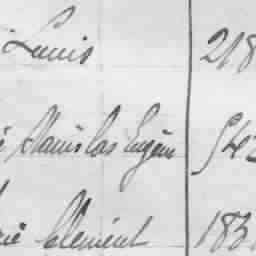 Louis 218
Stanislas Eugène 542
Clément 183